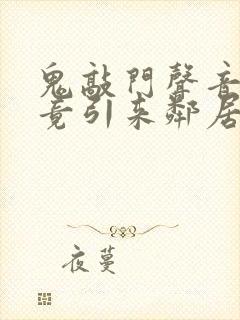 鬼敲門聲音
竟引來鄰居
夜蔓